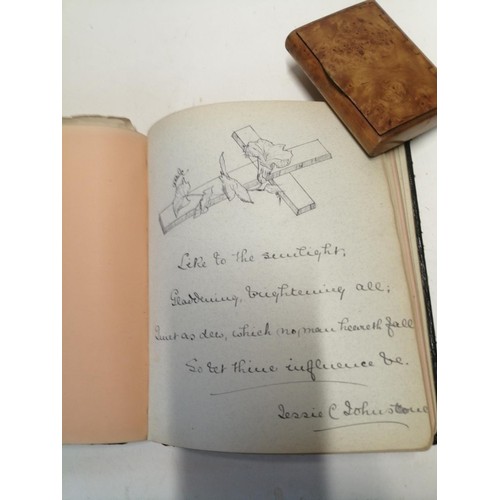 Like to the sunlight;
Gladdening, brightening all;
Quiet as dew, which no, man heareth fall
So let thine influence be.
Jessie C Johnstone